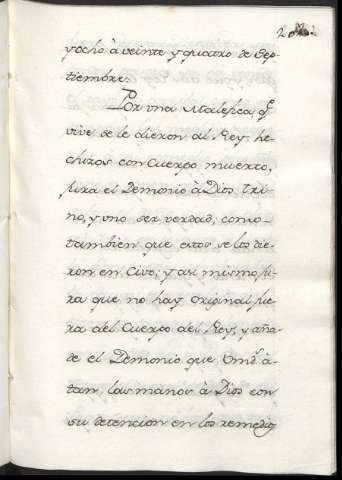 2
y ocho à veinte y quatro de Sep-
tiembre.
Por una Maléfica q.e
vive se le dieron al Rey he-
chizos con Cuerpo muerto,
jura el Demonio à Dios Tri-
no, y uno ser verdad; como
tambien que estos se los die-
ron en Civo; y asi mismo ju-
ra que no hay original fue-
ra del Cuerpo del Rey, y aña-
de el Demonio que Vmd.s à-
tam, las manos à Dios con
su detencion en los remedios